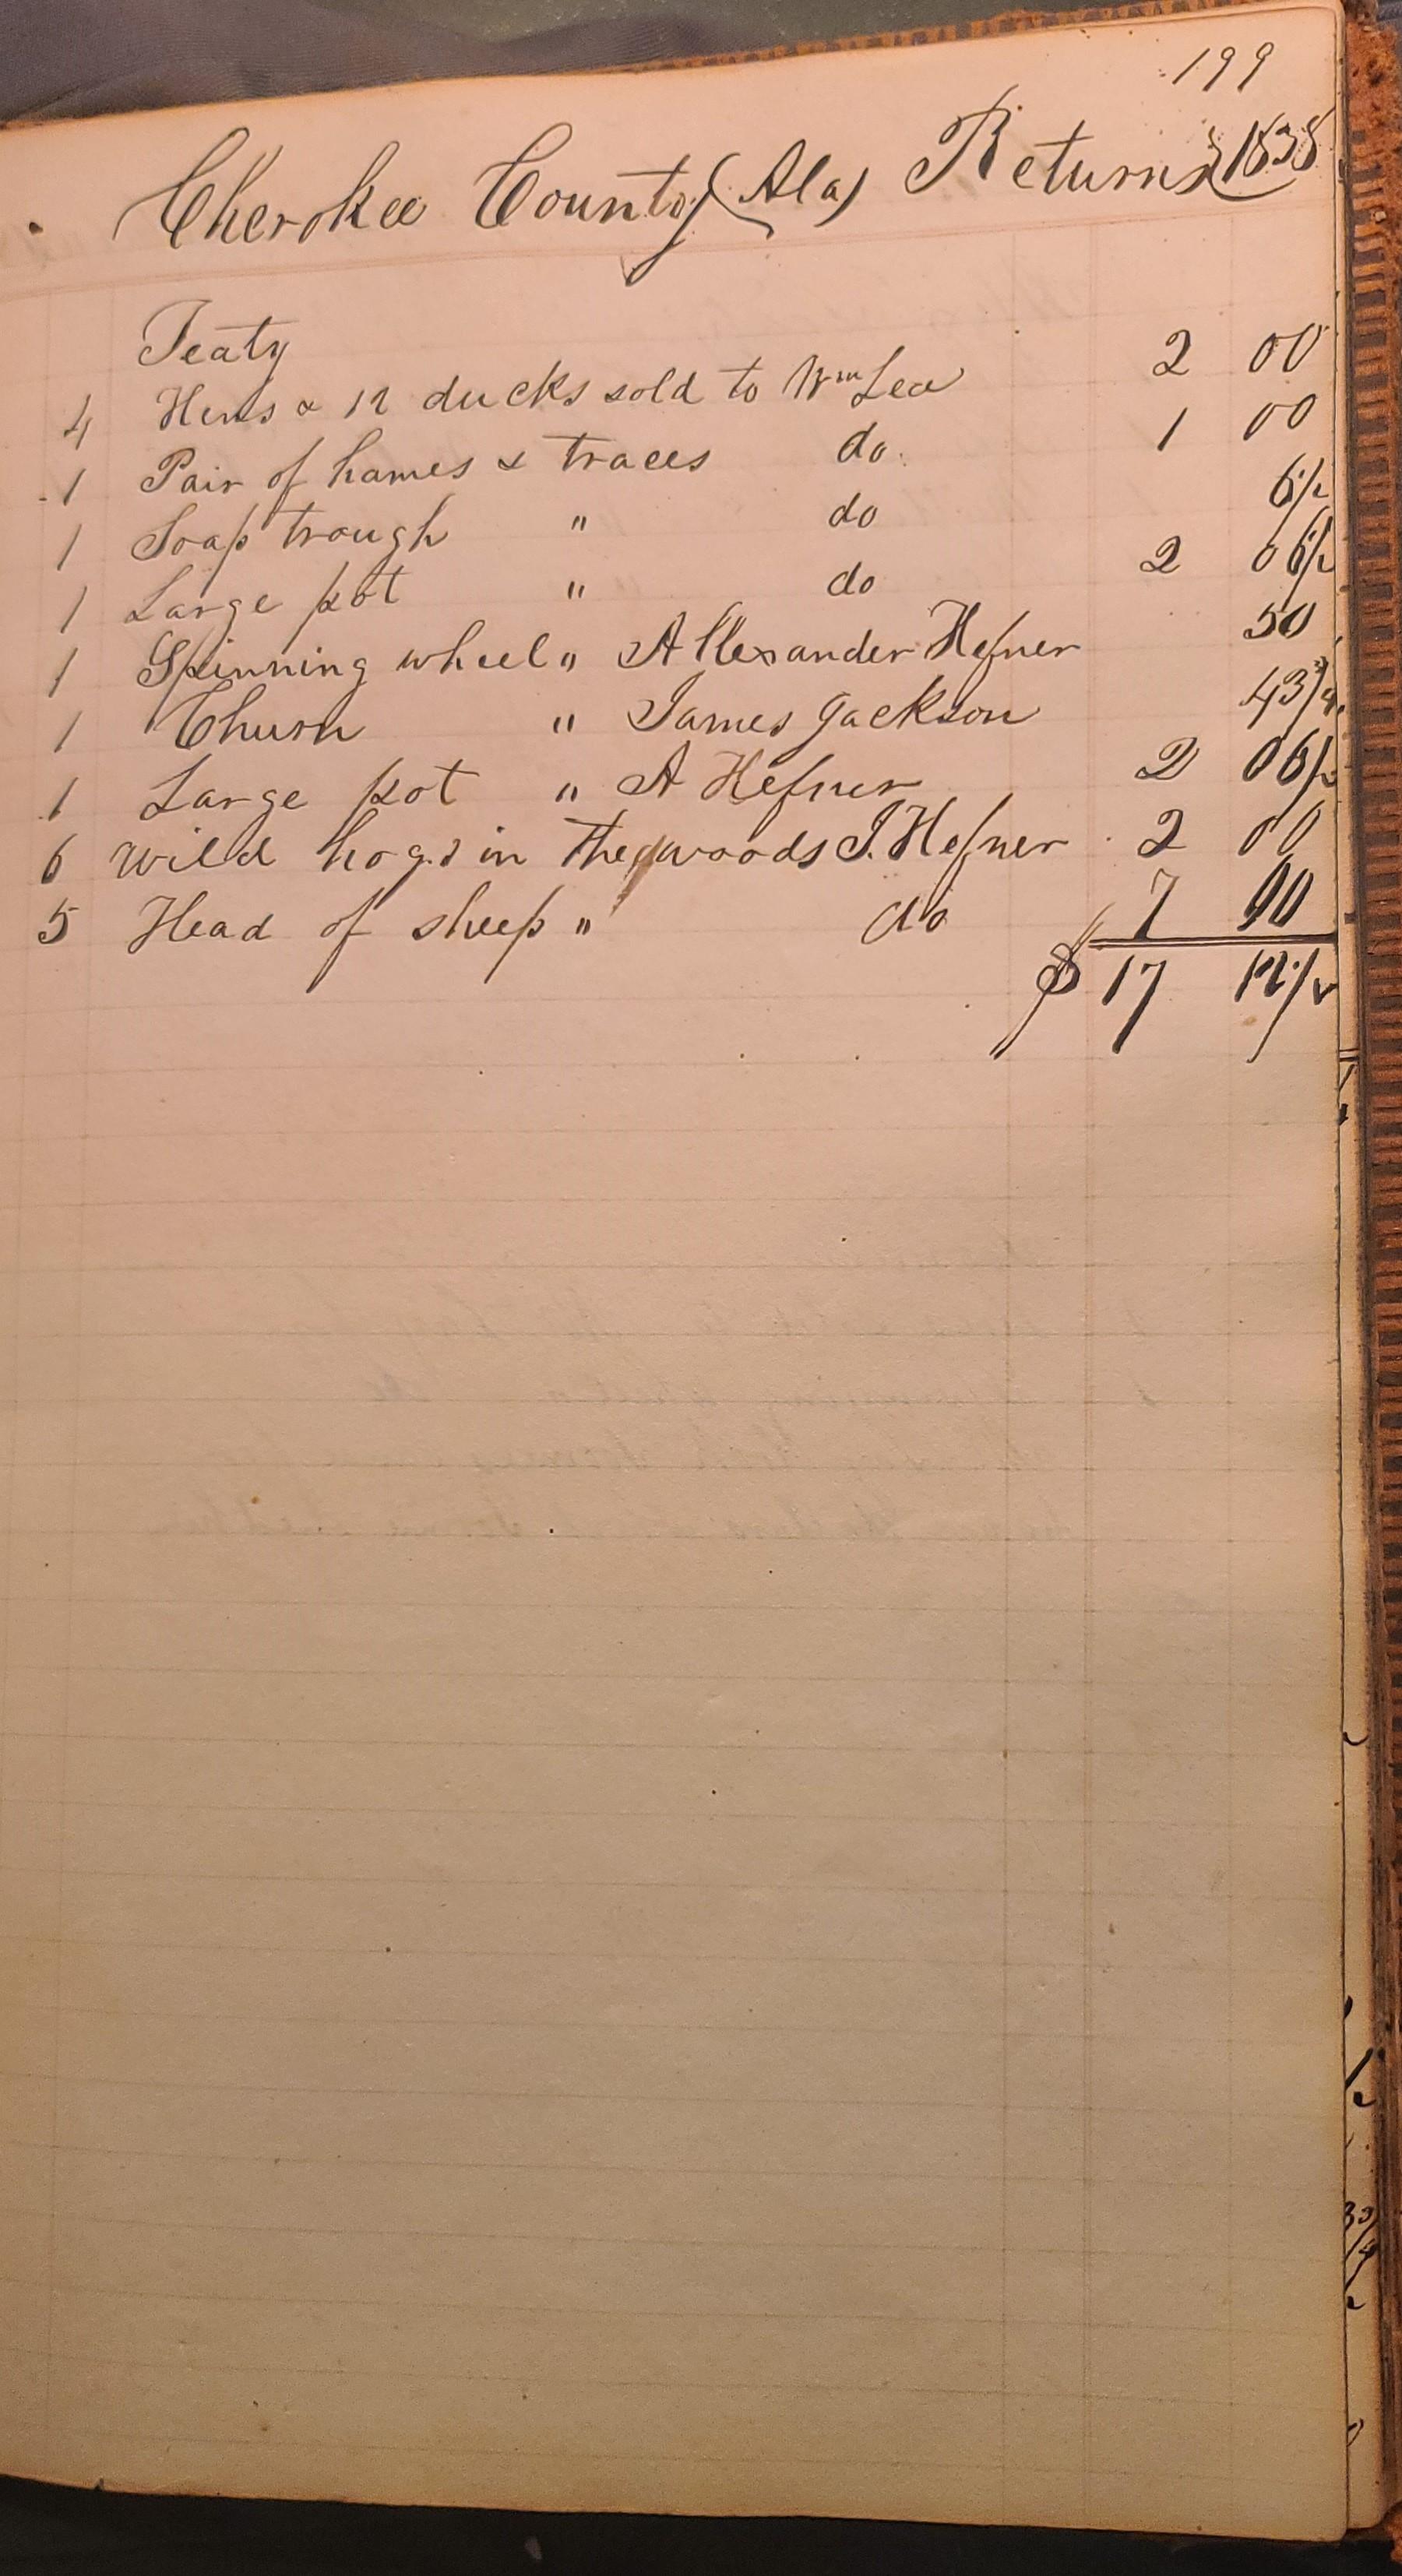 199
Cherokee County (Ala) Returns 1838
Teaty
4 Hens & 12 ducks sold to Wm Lea 2 00
1 Pair of hames & traces do. 1 00
1 Soap trough " do 6 1/2
1 Large pot " do 2 06 1/2
1 Spinning wheel " Allexander Hefner 50
1 Churn " James Jackson 43 3/4
1 Large pot " A Hefner 2 06 1/2
6 Wild hogs in the woods J. Hefner 2 00
5 Head of sheep " do 7 00
$ 17 12 1/2